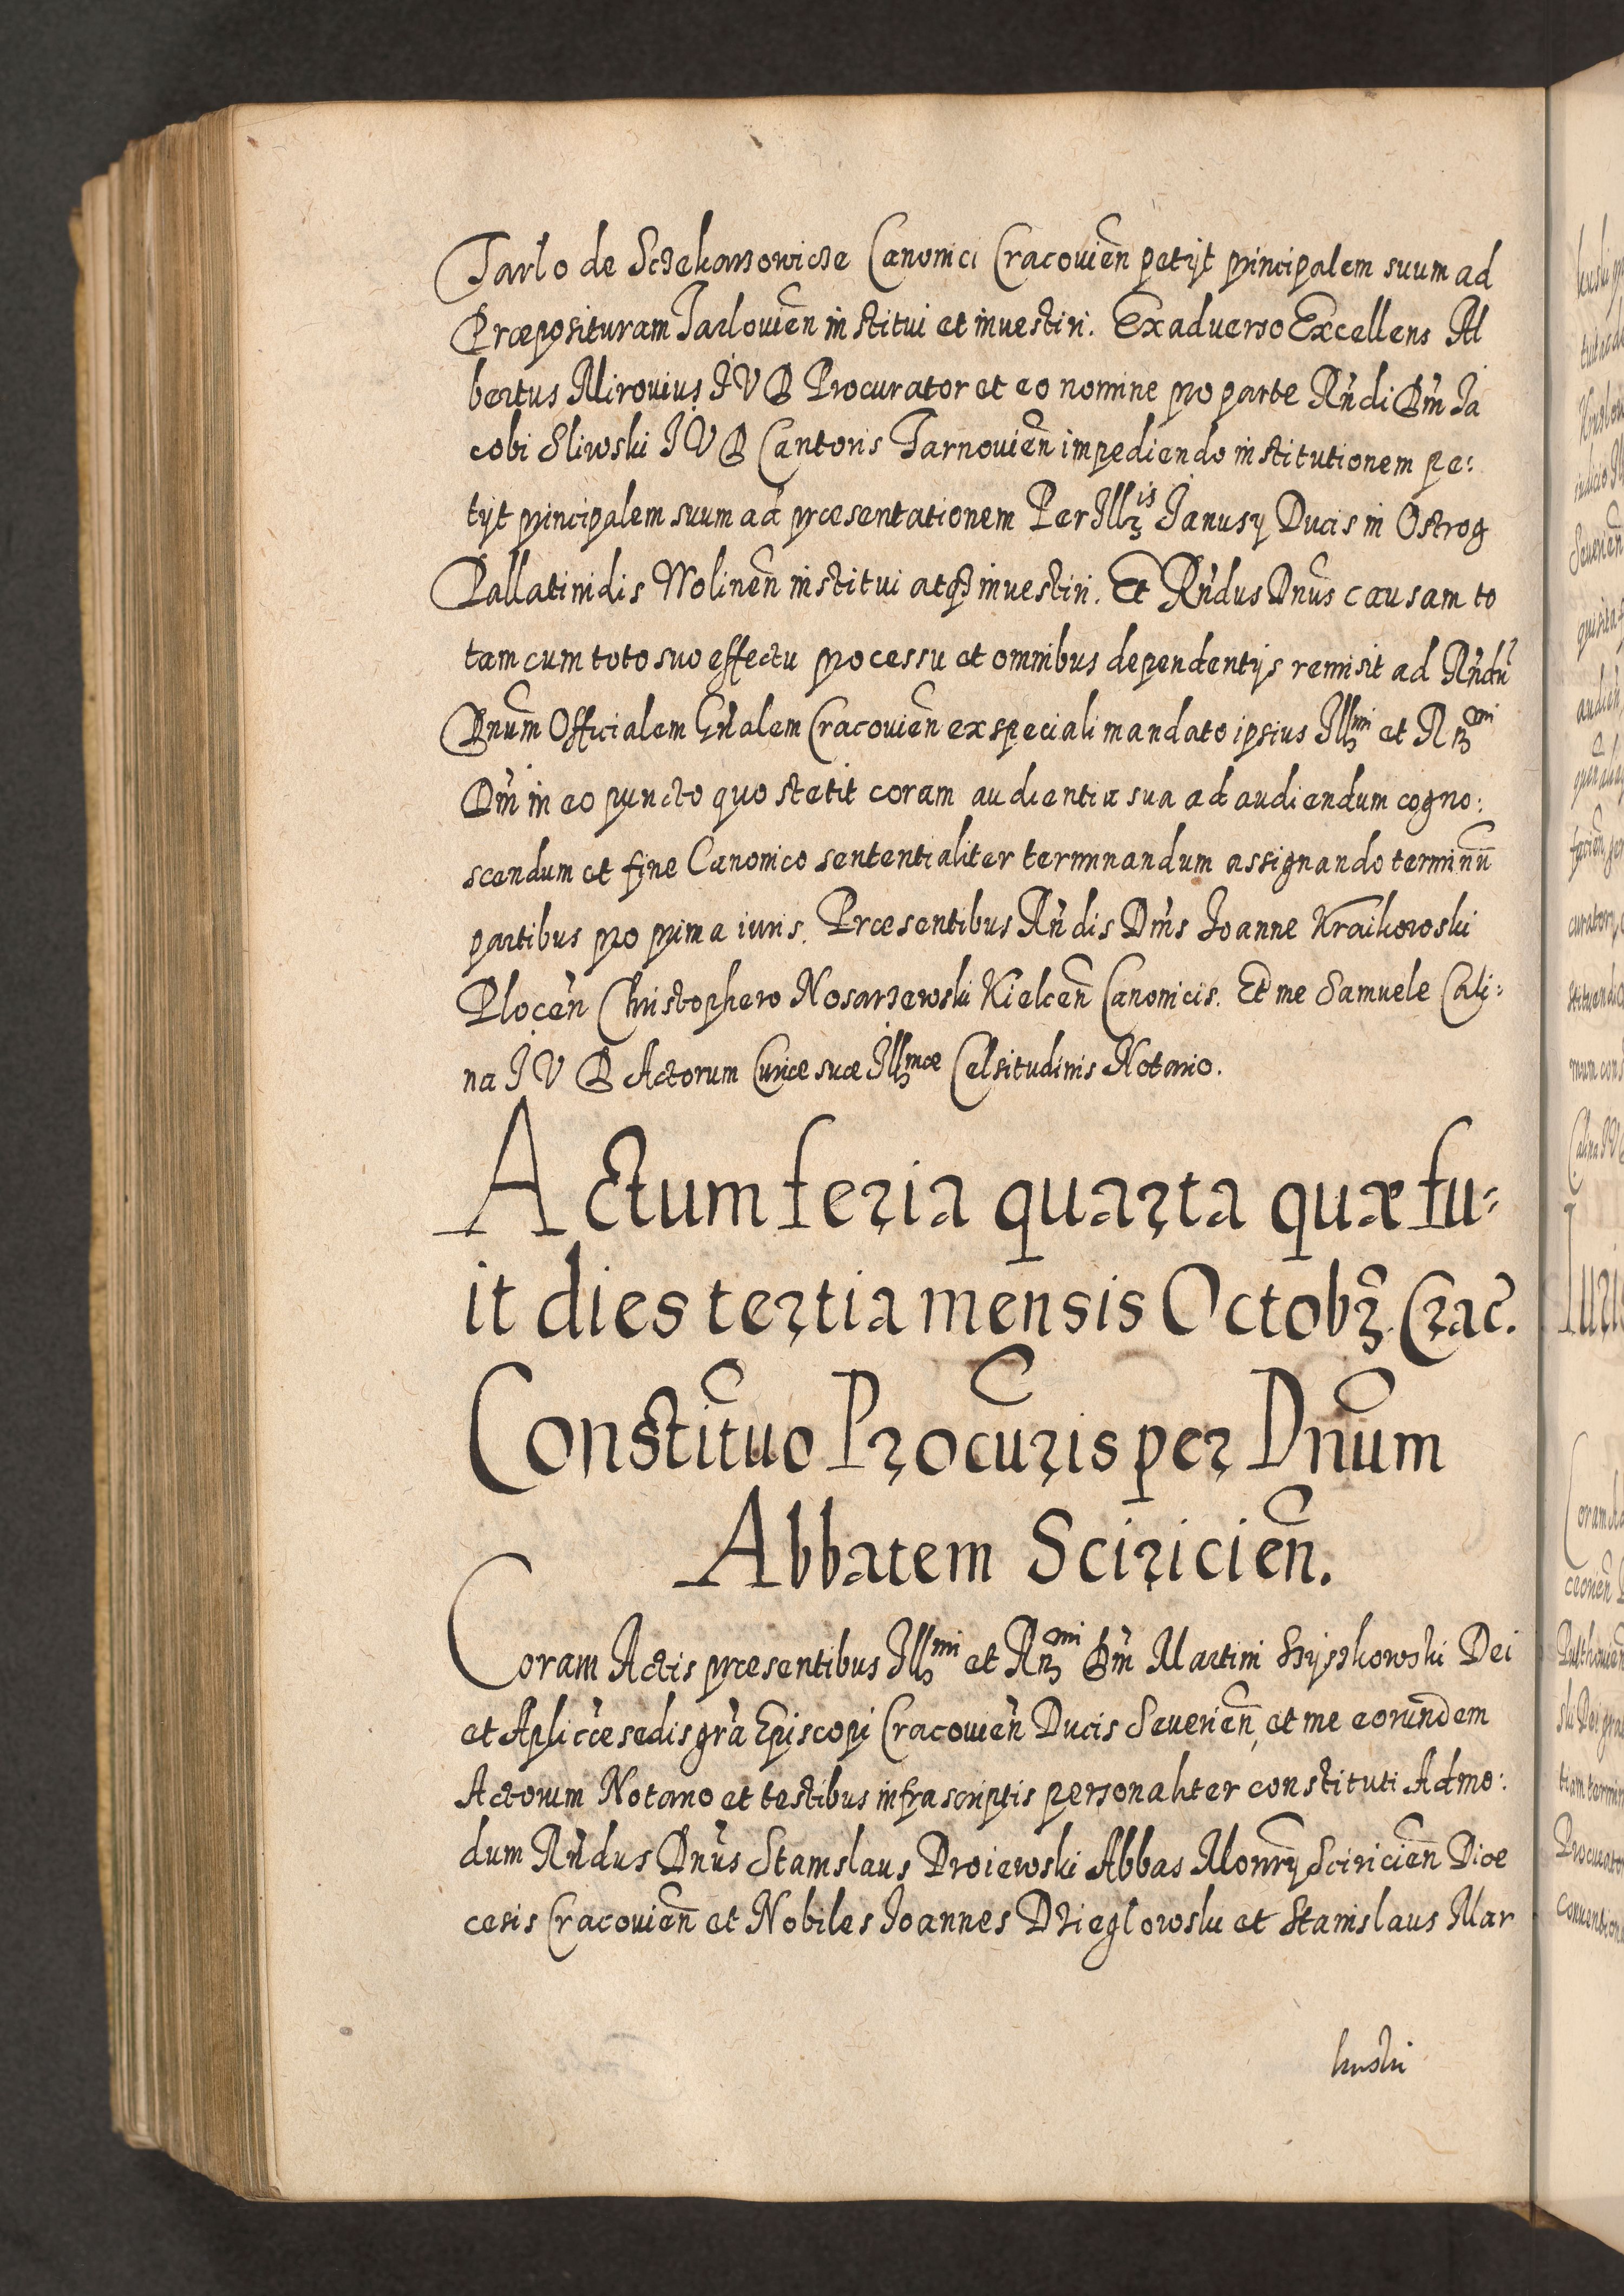 Tarlo de Sczekarzowicze Canonici Cracovien̄ petijt principalem suum ad
Præposituram Tarlovien̄ institui et investiri. Ex adverso Excellens Al
bertus Mirovius I V D Procurator et eo nomine pro parte Rn̄di Dn̄i Ia
cobi Sliwski I V D Cantoris Tarnovien̄ impediendo institutionem pe:
tijt principalem suum ad præsentationem Per Ill̄ris Janusy Ducis in Ostrog
Pallatinidis Wolinen̄ institui atq3 investiri. Et Rn̄dus Dn̄us causam to
tam cum toto suo effectu processu et omnibus dependentijs remisit ad Rn̄dū
Dn̄um Officialem Gn̄alem Cracovien̄ ex speciali mandato ipsius Ill̄mi et R̄mi
Dn̄i in eo puncto quo stetit coram audientia sua ad audiendum cogno:
scendum et fine Canonico sententialiter terminandum assignando terminū
partibus pro prima iuris. Præsentibus Rn̄dis Dn̄is Joanne Kraikowski
Plocen̄ Christophero Nosarzewski Kielcen̄ Canonicis. Et me Samuele Cali:
na I V D Actorum Curiæ suæ Ill̄mæ Celsitudinis Notario.
Actum feria quarta quæ fu:
it dies tertia mensis Octobr̄. Crac̄.
Constitūo Procūris per Dn̄um
Abbatem Sciricien̄.
Coram Actis præsentibus Ill̄mi et R̄mi Dn̄i Martini Szyszkowski Dei
et Ap̄licæ sedis gr̄a Episcopi Cracovien̄ Ducis Severien̄, et me eorundem
Actorum Notario et testibus infrascriptis personaliter constituti Admo:
dum Rn̄dus Dn̄us Stanislaus Droiewski Abbas Mon̄rij Sciricien̄ Diœ
cesis Cracovien̄ et Nobiles Joannes Dzieglowski et Stanislaus Mar
kuski